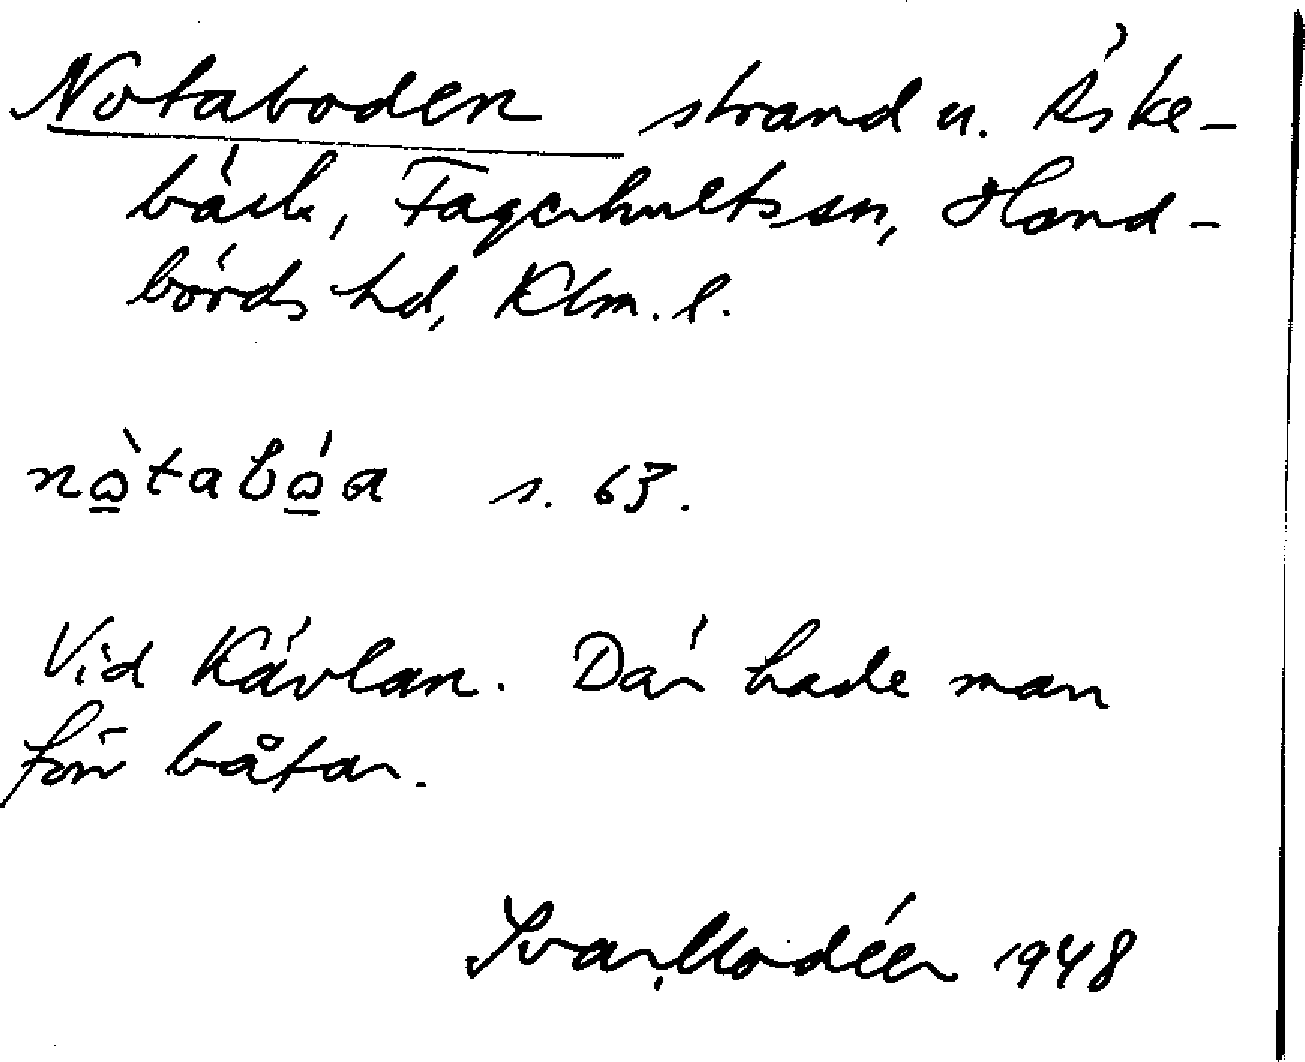 Notaboden strand u. Äske-
bäck, Fagerhults sn, Hand-
börds hd, Klm. l.
nò̱tabó̱a s. 63.
Vid Kävlan. Där hade man
förr båtar.
Ivar Modéer 1948